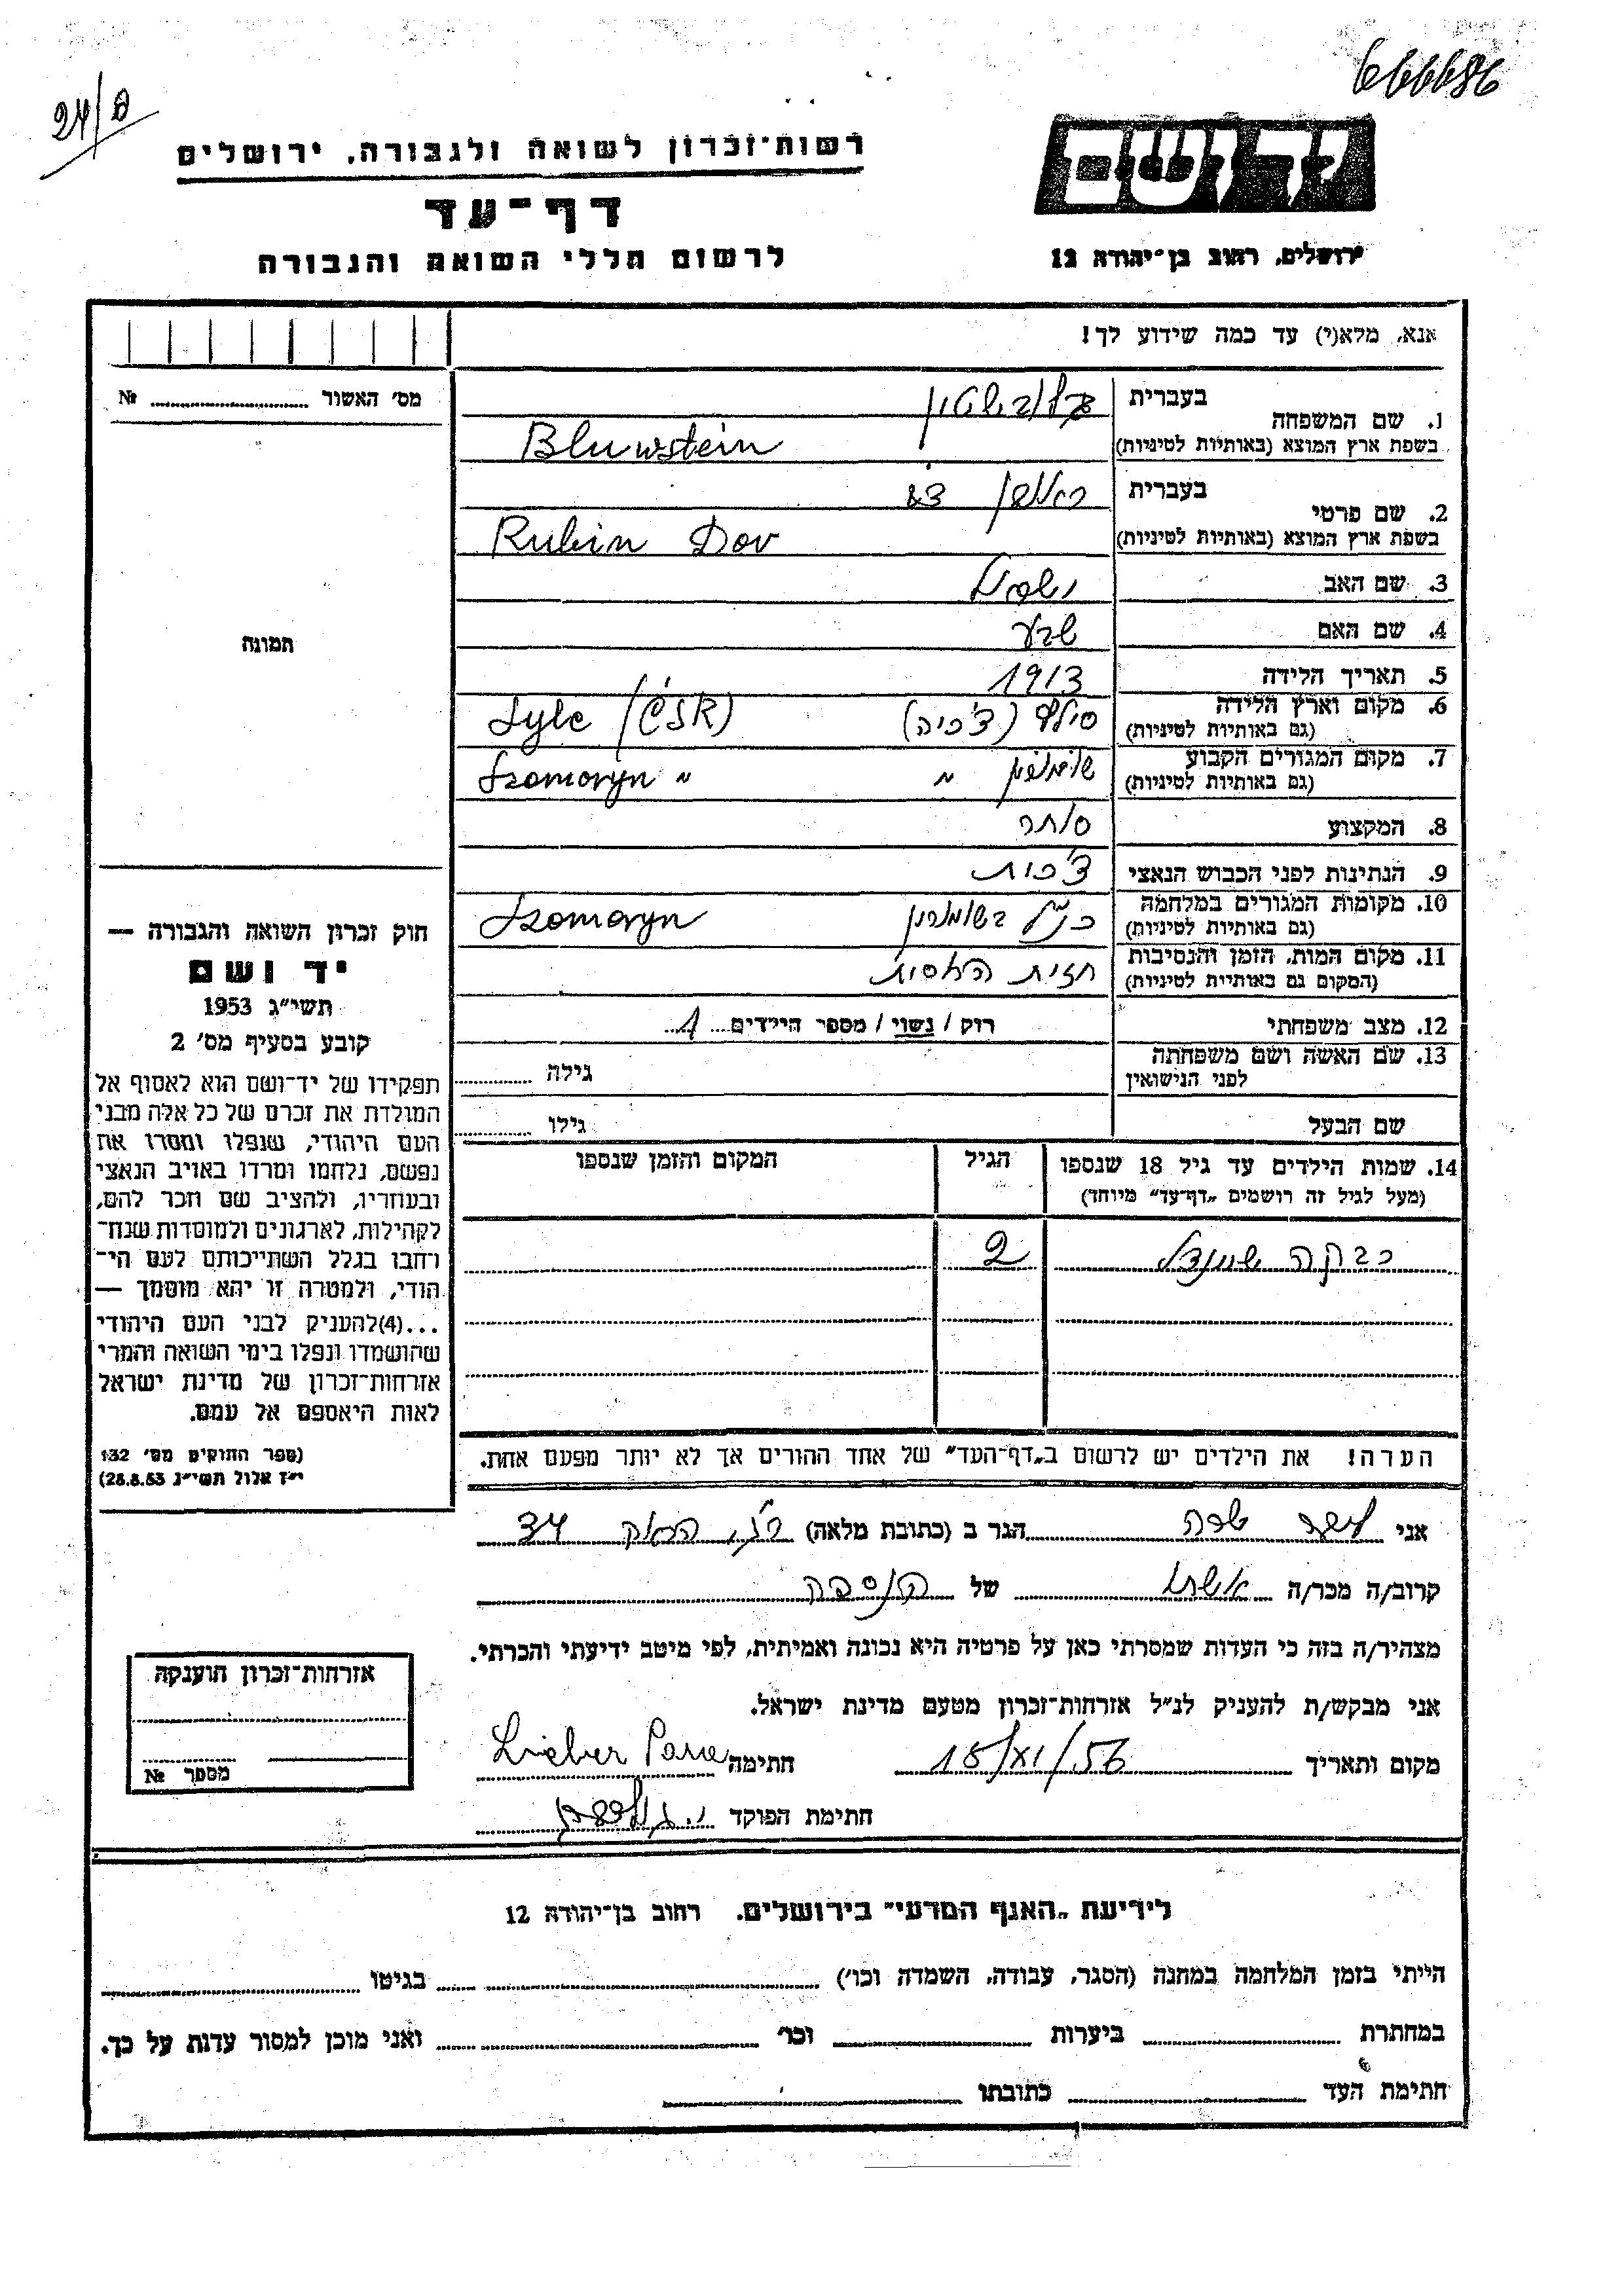 666686
24/8
רשות־זכרון לשואה ולגבורה, ירושלים
יד ושם
דף־עד
לרשום חללי השואה והגבורה
ירושלים, רחוב בן־יהודה 12
אנא, מלא(י) עד כמה שידוע לך!
מס' האשור № 
1. שם המשפחה
בעברית בלובשטיין
בשפת ארץ המוצא (באותיות לטיניות) Bluwstein
2. שם פרטי
בעברית ראובן דב
בשפת ארץ המוצא (באותיות לטיניות) Rubin Dov
3. שם האב ישראל
4. שם האם
5. תאריך הלידה 1913
6. מקום וארץ הלידה
(גם באותיות לטיניות) (צ'כיה) Syle (ČSR)
7. מקום המגורים הקבוע
(גם באותיות לטיניות) " Szomoryn "
8. המקצוע סוחר
9. הנתינות לפני הכבוש הנאצי צ'כית
10. מקומות המגורים במלחמה
(גם באותיות לטיניות) כנ"ל Szomoryn
11. מקום המות, הזמן והנסיבות
(המקום גם באותיית לטיניות) חזית הרוסית
12. מצב משפחתי רוק / נשוי / מספר הילדים 1
13. שם האשה ושם משפחתה
לפני הנישואין גילה
שם הבעל גילו
14. שמות הילדים עד גיל 18 שנספו
(מעל לגיל זה רושמים „דף־עד” מיוחד)
הגיל
המקום והזמן שנספו
רבקה שיינדל 2
הערה! את הילדים יש לרשום ב„דף־העד” של אחד ההורים אך לא יותר מפעם אחת.
תמונה
חוק זכרון השואה והגבורה —
יד ושם
תשי"ג 1953
קובע בסעיף מס' 2
תפקידו של יד־ושם הוא לאסוף אל
המולדת את זכרם של כל אלה מבני
העם היהודי, שנפלו ומסרו את
נפשם, נלחמו ומרדו באויב הנאצי
ובעוזריו, ולהציב שם וזכר להם,
לקהילות, לארגונים ולמוסדות שנח־
רחבו בגלל השתייכותם לעם הי־
הודי, ולמטרה זו יהא מוסמך —
...(4)להעניק לבני העם היהודי
שהושמדו ונפלו בימי השואה והמרי
אזרחות־זכרון של מדינת ישראל
לאות היאספם אל עמם.
(ספר החוקים מס' 132
י"ז אלול תשי"ג 28.8.53)
אני שרה הגר ב (כתובת מלאה) 34
קרוב/ה מכר/ה של הנספה
מצהיר/ה בזה כי העדות שמסרתי כאן על פרטיה היא נכונה ואמיתית, לפי מיטב ידיעתי והכרתי.
אני מבקש/ת להעניק לנ"ל אזרחות־זכרון מטעם מדינת ישראל.
מקום ותאריך 15/XI/56 חתימה Lieber
חתימת הפוקד
אזרחות־זכרון הוענקה
מספר №
לידיעת „האגף המדעי” בירושלים. רחוב בן־יהודה 12
הייתי בזמן המלחמה במחנה (הסגר, עבודה, השמדה וכו') בגיטו
במחתרת ביערות וכו' ואני מוכן למסור עדות על כך.
חתימת העד כתובתו